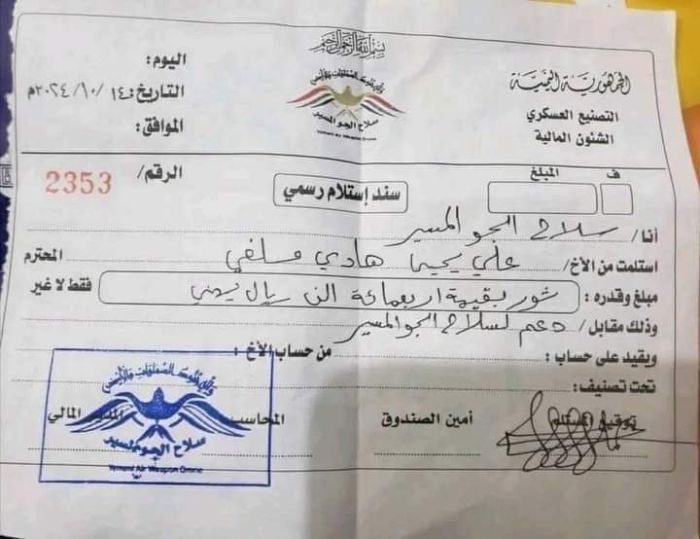 بسم الله الرحمن الرحيم
الجمهورية اليمنية
التصنيع العسكري
الشئون المالية
سلاح الجو المسير
Yemeni Air Weapon Drone
اليوم:
التاريخ: ١٤ / ١٠ / ٢٠٢٤م
الموافق:
ف المبلغ
سند إستلام رسمي
الرقم/ 2353
أنا/ سلاح الجو المسير
استلمت من الأخ/ علي يحيى هادي مسلفي المحترم
مبلغ وقدره: ثور بقيمة اربعمائة الف ريال يمني فقط لا غير
وذلك مقابل/ دعم لسلاح الجو المسير
ويقيد على حساب: من حساب الأخ:
تحت تصنيف:
توقيع المستلم أمين الصندوق المحاسب المالي
سلاح الجو المسير
Yemeni Air Weapon Drone